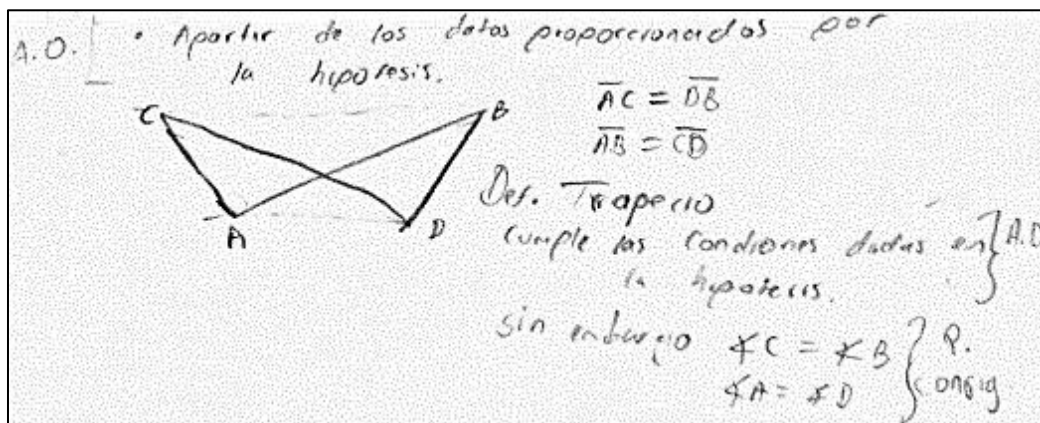 A.O. • Apartir de los datos proporcionados por
la hipotesis.
C
B
A
D
AC = DB
AB = CD
Def. Trapecio
cumple las condiones dadas en } A.D
la hipotesis.
sin embargo ∡C = ∡B } P.
∡A = ∡D config.